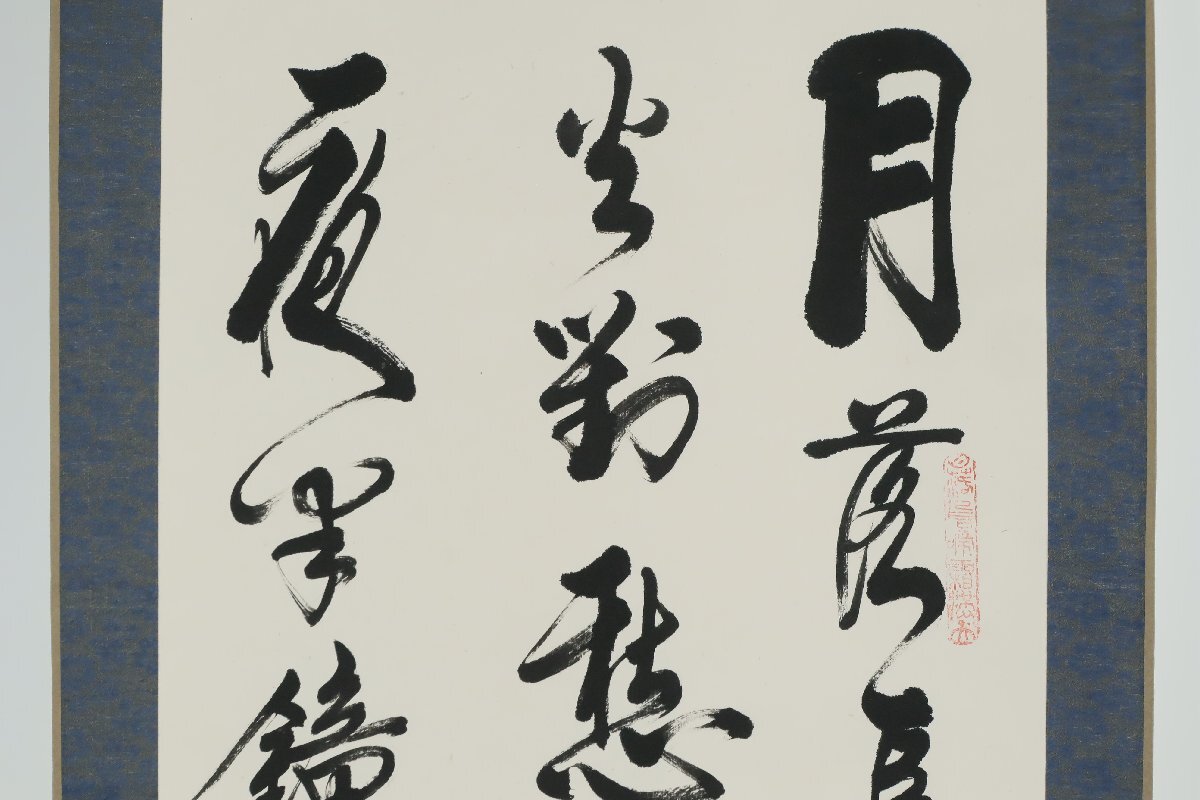 月落烏
火對愁
夜半鐘